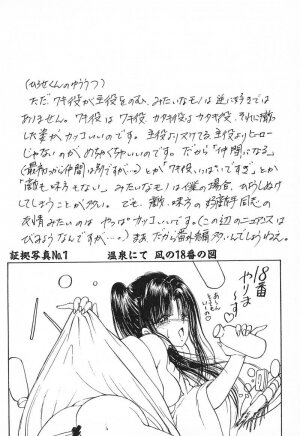 (ひろせくんのゆううつ)
ただワキ役が主役をのむ、みたいなモノは逆に好きでは
ありません。ワキ役はワキ役、カタキ役はカタキ役、それに徹し
した姿がカッコいいのです。主役よりスゲてる、主役よりヒーロー
じゃないのがめちゃくちゃいいのです。だから「仲間になる」
(最初から仲間は別ですが…)とか「ワキ役いっぱいですぎ」とか
「敵も味方もない」みたいなモノは僕の場合、
してしまうことが多い。でも、敵、味方の 同志の
友情みたいのは やっぱカッコいいです。(この辺のニュアンスは
びみょうなんですが…。)まあ、だから番外編多いんでしょうねえ。
証拠写真No.1 温泉にて 凪の18番の図
18番
やりま
〜す